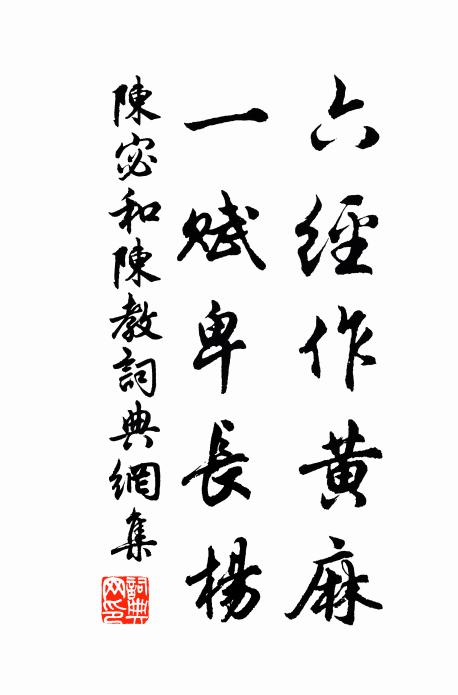 六經作黄麻
一賦卑長楊
陳宓和陳教詞典網集
詞典网印